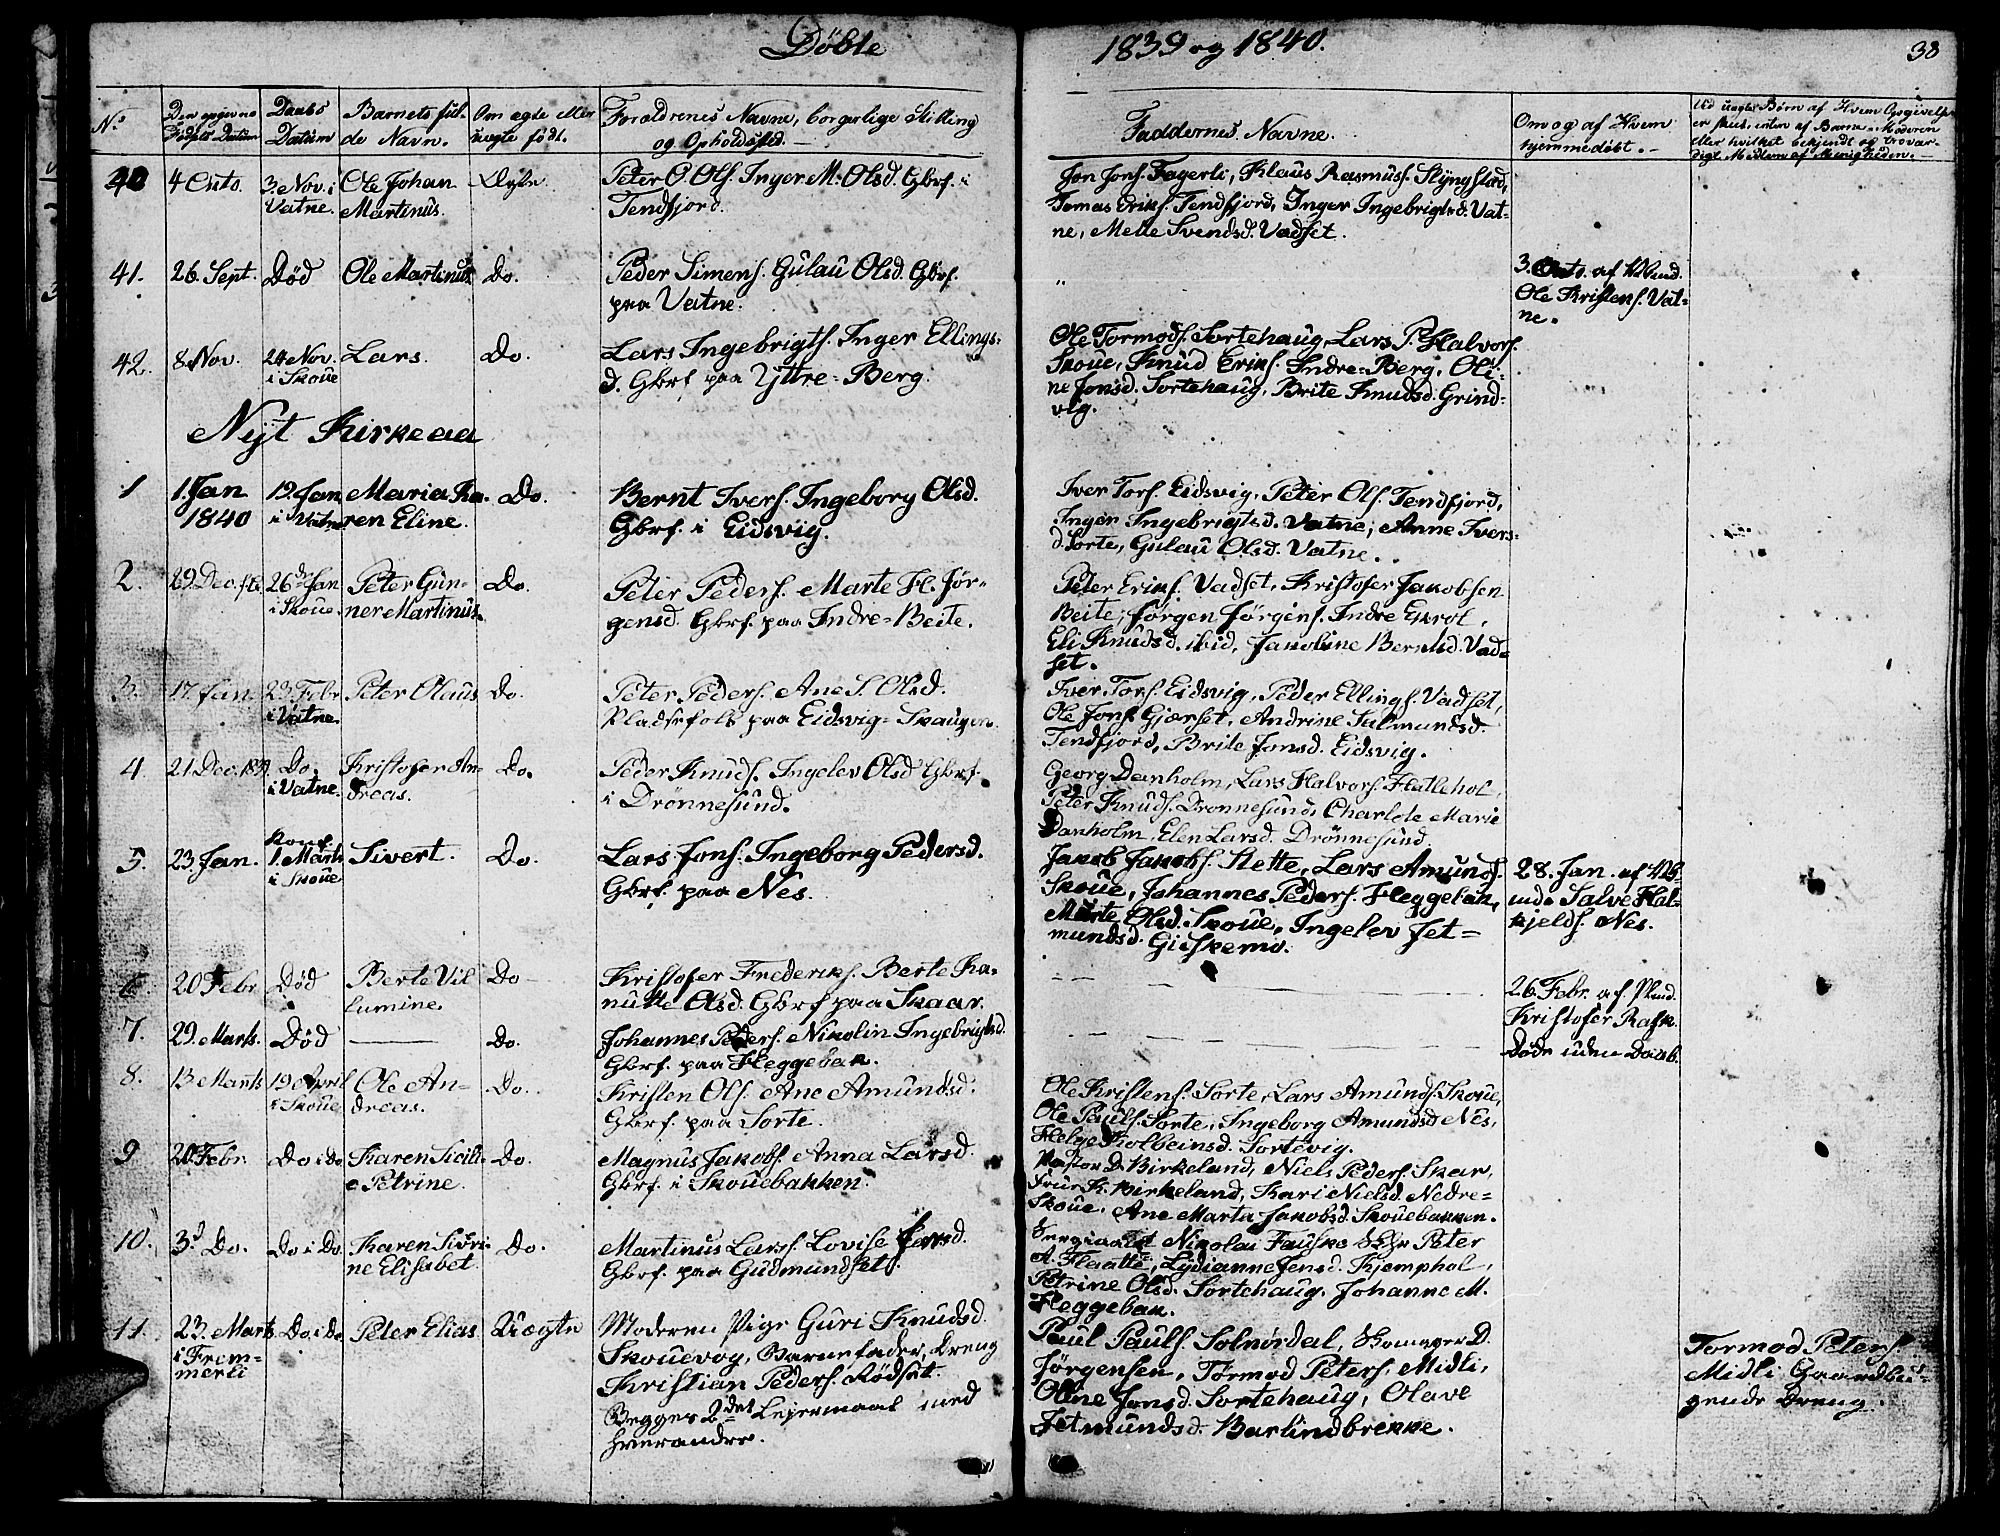 Döbte
1839 og 1840.
38
No
Den opgivne
Fødsels Datum
Daabs
Datum
Barnets ful-
de Navn.
Om ægte eller
uægte født.
Forældrenes Navne, borgerlige Stilling
og Opholdssted.
Faddernes Navne.
Om og af Hvem
hjemmedøbt.
Ved uægte Børn af Hvem Opgivelsen
er skeet, enten af Barne-Moderen
eller hvilket bekjendt og trovær-
digt Medlem af Menigheden.
40
4 Octo.
3 Nov. i
Vatne.
Ole Johan
Martinus.
Ægte.
Peter O. Ols. Inger M. Olsd. Gbrf. i
Tendfjord.
Jon Jons. Fagerli, Klaus Rasmuss. Slyngstad,
Tomas Eriks. Tendfjord, Inger Ingebrigtsd. Vat-
ne, Mette Svendsd. Vadset.
41.
26. Sept.
Död
Ole Martinus
Do.
Peder Simens. Gulau Olsd. Gbrf.
paa Vatne.
"
3. Octo. af
Ole Kristens. Vat-
ne.
42.
8 Nov.
24 Nov.
i Skoue
Lars.
Do.
Lars Ingebrigts. Inger Ellings-
d. Gbrf. paa Yttre-Berg.
Ole Tormods. Sortehaug, Lars P. Halvors.
Skoue, Knud Eriks. Indre-Berg, Oli-
ne Jonsd. Sortehaug, Brite Knudsd. Grind-
vig.
Nyt Kirkeaa
1
1. Jan
1840
19. Jan
i Vatne
Maria Ka-
ren Eline.
Do.
Bernt Ivers. Ingeborg Olsd.
Gbrf. i Eidsvig.
Iver Tors. Eidsvig, Peter Ols. Tendfjord,
Inger Ingebrigtsd. Vatne, Anne Ivers-
d. Sorte, Gulau Olsd. Vatne.
2.
29. Dec.
26de Jan
i Skoue.
Peter Gun-
ner Martinus.
Do.
Peter Peders. Marte H. Jør-
gensd. Gbrf. paa Indre-Beite.
Peter Eriks. Vadset, Kristofer Jakobsen
Beite, Jørgen Jørgens. Indre
Eli Knudsd. ibid, Jakobine Berntsd. Vad-
set.
3.
17. Jan
23. Febr
i Vatne.
Peter Olaus
Do.
Peter Peders. Ane S. Olsd.
Pladsefolk paa Eidsvig-Skaugen.
Iver Tors. Eidsvig, Peder Ellings. Vadset,
Ole Jons. Gjærset, Andrine Salmundsd.
Tendfjord, Brite Jonsd. Eidsvig.
4.
21 Dec. 1839
Do.
i Vatne.
Kristofer An-
dreas.
Do.
Peder Knuds. Ingelev Olsd. Gbrf.
i Drönnesund.
Georg Danholm, Lars Halvors. Hatlehol,
Peter Knuds. Drönnesund, Charlote Marie
Danholm, Elen Larsd. Drönnesund.
5.
23. Jan.
Konf.
1. Marts
i Skoue
Sivert.
Do.
Lars Jons. Ingeborg Pedersd.
Gbrf. paa Nes.
Jakob Jakobs. Slette, Lars Amunds.
Skoue, Johannes Peders. Heggebak,
Marte Olsd. Skoue, Ingelev Jet-
mundsd. Giskemo.
28. Jan. af
Salve Hal-
kjelds. Nes.
6.
20 Febr
Död
Berte Vil-
lumine.
Do
Kristofer Frederiks. Berte Ka-
nutte Olsd. Gbrf. paa Skaar.
26. Febr. af
Kristofer Rask.
7.
29. Marts.
Död
Do.
Johannes Peders. Nikolin Ingebrigtsd.
Gbrf. paa Heggebak.
Døde uden Daab.
8.
13 Marts
19 April
i Skoue
Ole An-
dreas.
Do.
Kristen Ols. Ane Amundsd.
Gbrf. paa Sorte.
Ole Kristens. Sorte, Lars Amunds. Skoue,
Ole Pauls. Sorte, Ingeborg Amundsd Nes,
Helge Kolbeinsd. Sortevig.
9
20 Febr.
Do i Do
Karen Sicili-
e Petrine.
Do.
Magnus Jakobs. Anna Larsd.
Gbrf. i Skouebakken.
Pastor D. Birkeland, Niels Peders. Skar,
Frue K. Birkeland, Kari Nielsd. Nedre-
Skoue. Ane Marta Jakobsd. Skouebakken.
10.
3d Do.
Do i Do.
Karen Sivri-
ne Elisabet.
Do.
Martinus Larss. Lovise Larsd.
Gbrf. paa Gudmundset.
Sergiant Nikolai Fauske Peter
A. Flaatte, Lydianne Jensd. Kjemphol,
Petrine Olsd. Sortehaug, Johanne M.
Heggebak.
11.
23. Marts
i Frem-
merli
Do. i Do.
Peter Elias.
Uægte
Moderen Pige Guri Knudsd.
Skouevog, Barnefader, Dreng
Kristian Peders. Rödset.
Begges 2det Leiermaal med
hverandre.
Paul Pauls. Solnördal, D.
Jørgensen, Tormod Peters. Midli,
Oline Jonsd. Sortehaug, Olave
Jetmundsd. Barlindbrekke.
Tormod Peters.
Midli Gaardbru-
gende Dreng.